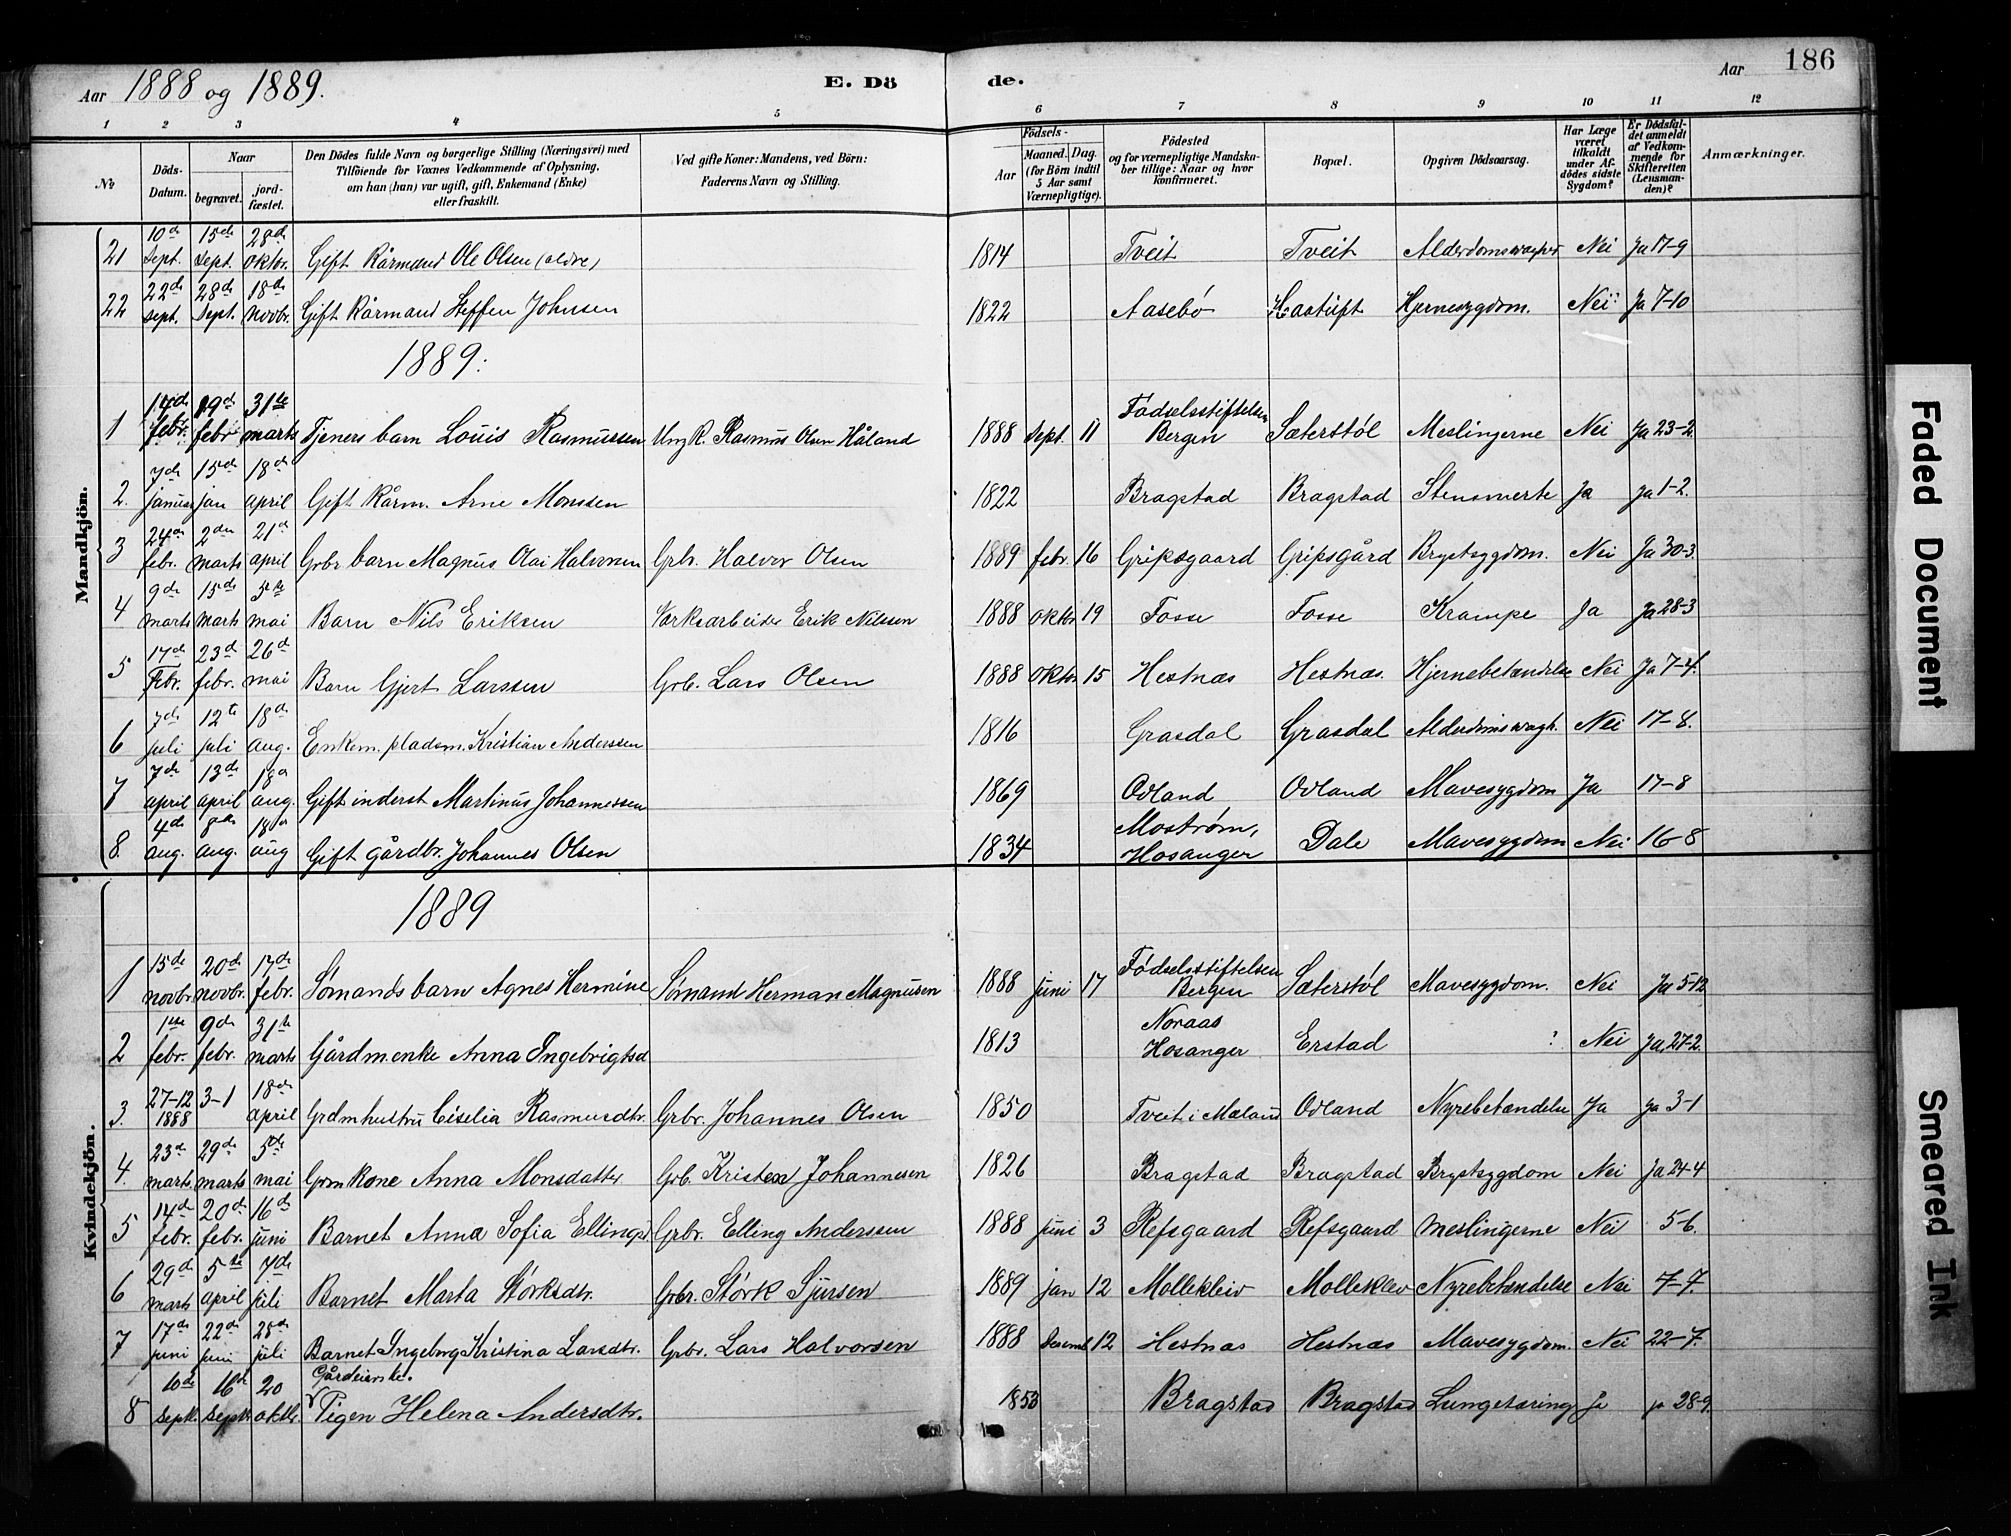 Aar 1888 og 1889. E. Dö de. Aar 186
1 2 3 4 5 6 7 8 9 10 11 12
№ Döds-Datum. Naar begravet. jordfæstet. Den Dödes fulde Navn og borgerlige Stilling (Næringsvei) med Tilföiende for Voxnes Vedkommende af Oplysning, om han (hun) var ugift, gift, Enkemand (Enke) eller fraskilt. Ved gifte Koner: Mandens, ved Börn: Faderens Navn og Stilling. Aar Födsels-Maaned. Dag. (for Börn indtil 5 Aar samt Værnepligtige). Födested og for værnepligtige Mandskaber tillige: Naar og hvor konfirmeret. Bopæl. Opgiven Dödsaarsag. Har Læge været tilkaldt under Afdödes sidste Sygdom? Er Dödsfaldet anmeldt af Vedkommende for Skifteretten (Lensmanden)? Anmærkninger.
Mandkjön.
21 10de Sept. 15de Sept. 28de oktbr. Gift Kårmand Ole Olsen (eldre) 1814 Tveit Tveit Nei Ja 17-9
22 22de sept. 28de Sept. 18de Novbr. Gift Kårmand Steffen Johnsen 1822 Aasebø Haatuft Hjernesygdom. Nei Ja 7-10
1889:
1 14de febr. 19de febr 31te marts Tjeners barn Louis Rasmussen Ung R. Rasmus Olsen Håland 1888 Sept. 11 Fødselsstiftelsen Bergen Sæterstøl Meslingerne Nei Ja 23-2
2. 7de januar 15de jan 18de april Gift Kårm. Arne Monssen 1822 Bragstad Bragstad Stensmerte Ja ja 1-2.
3 24de febr. 2den marts 21de april Grbr barn Magnus Olai Halvorsen Grbr. Halvor Olsen 1889 febr. 16 Gripsgaard Gripsgård Brystsygdom. Nei Ja 30-3
4 9de marts 15de marts 5te mai Barn Nils Eriksen Værksarbeider Erik Nilssen 1888 oktbr 19 Fosse Fosse Krampe Ja Ja 28-3
5 17de Febr. 23de febr. 26de mai Barn Gjert Larssen Grb. Lars Olsen 1888 oktbr 15 Hestnæs Hestnæs. Hjernebetændelse Nei Ja 7-4.
6 7de juli 12te juli 18de aug. Enkem. pladsm. Kristian Anderssen 1816 Grasdal Grasdal Nei 17-8.
7 7de april 13de april 18de aug. Gift inderst Martinus Johannessen 1869 Odland Odland Mavesygdom Ja 17-8
8. 4de aug. 8de aug. 18de aug Gift gårdbr. Johannes Olsen 1834 Mostrøm, Hosanger Dale Mavesygdom Nei 16-8
Kvindekjön.
1889
1 15de novbr. 20de novbr. 17de febr. Sømands barn Agnes Hermine Sømand Herman Magnusen 1888 juni 17 Fødselsstiftelsen Bergen Sæterstøl Mavesygdom. Nei Ja 5-12
2 1ste febr. 9de febr. 31te marts Gårdm.enke Anna Ingebrigtsd 1813 Noraas Hosanger Erstad ? Nei Ja, 27-2.
3. 27-12 1888 3-1 18de april Grdmhustru Cicelia Rasmusdtr. Grbr. Johannes Olsen 1850 Tveit i Mæland Odland Nyrebetændelse Ja ja 3-1
4. 23de marts 29de marts 5te mai Grmkone Anna Monsdatter Grb. Kristen Johannesen 1826 Bragstad Bragstad Brystsygdom Nei Ja 24-4
5 14de febr. 20de febr. 16de juni Barnet Anna Sofia Ellingsd Grbr. Elling Anderssen 1888 juni 3 Refsgaard Refsgaard Meslingerne Nei 5-6.
6 29de marts 5te april 7de juli Barnet Marta Størksdtr. Grbr. Størk Sjursen 1889 jan 12 Molleklev Molleklev Nyrebetændelse Nei 7-7.
7 17de juni 22de juni 28de juli Barnet Ingeborg Kristina Larsdtr. Grbr. Lars Halvorsen 1888 Desemb 12 Hestnæs Hestnæs Mavesygdom. Nei 22-7.
8 10de septb. 16de septb. 20 oktbr. Pigen Helena Andersdtr. 1853 Bragstad Bragstad Lungetæring Ja ja 28-9.
Faded Document
Smeared Ink